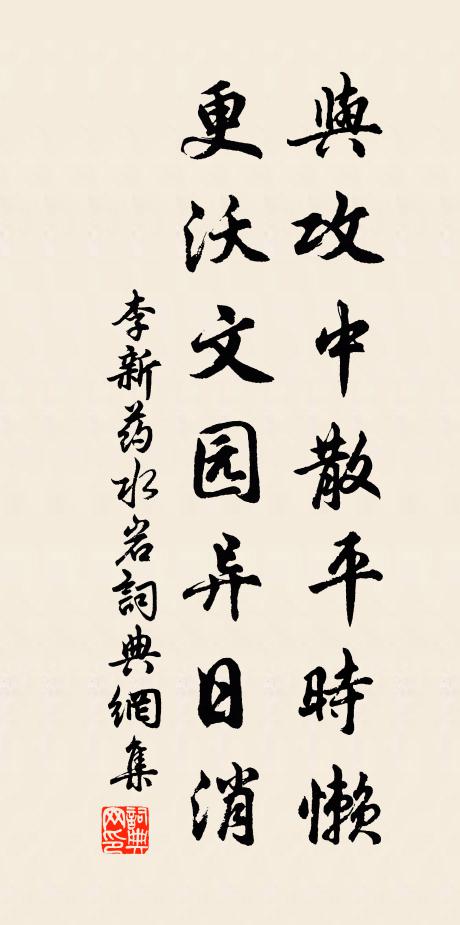 與攻中散平時懒
更沃文园异日消
李新药水岩詞典網集
詞典网印